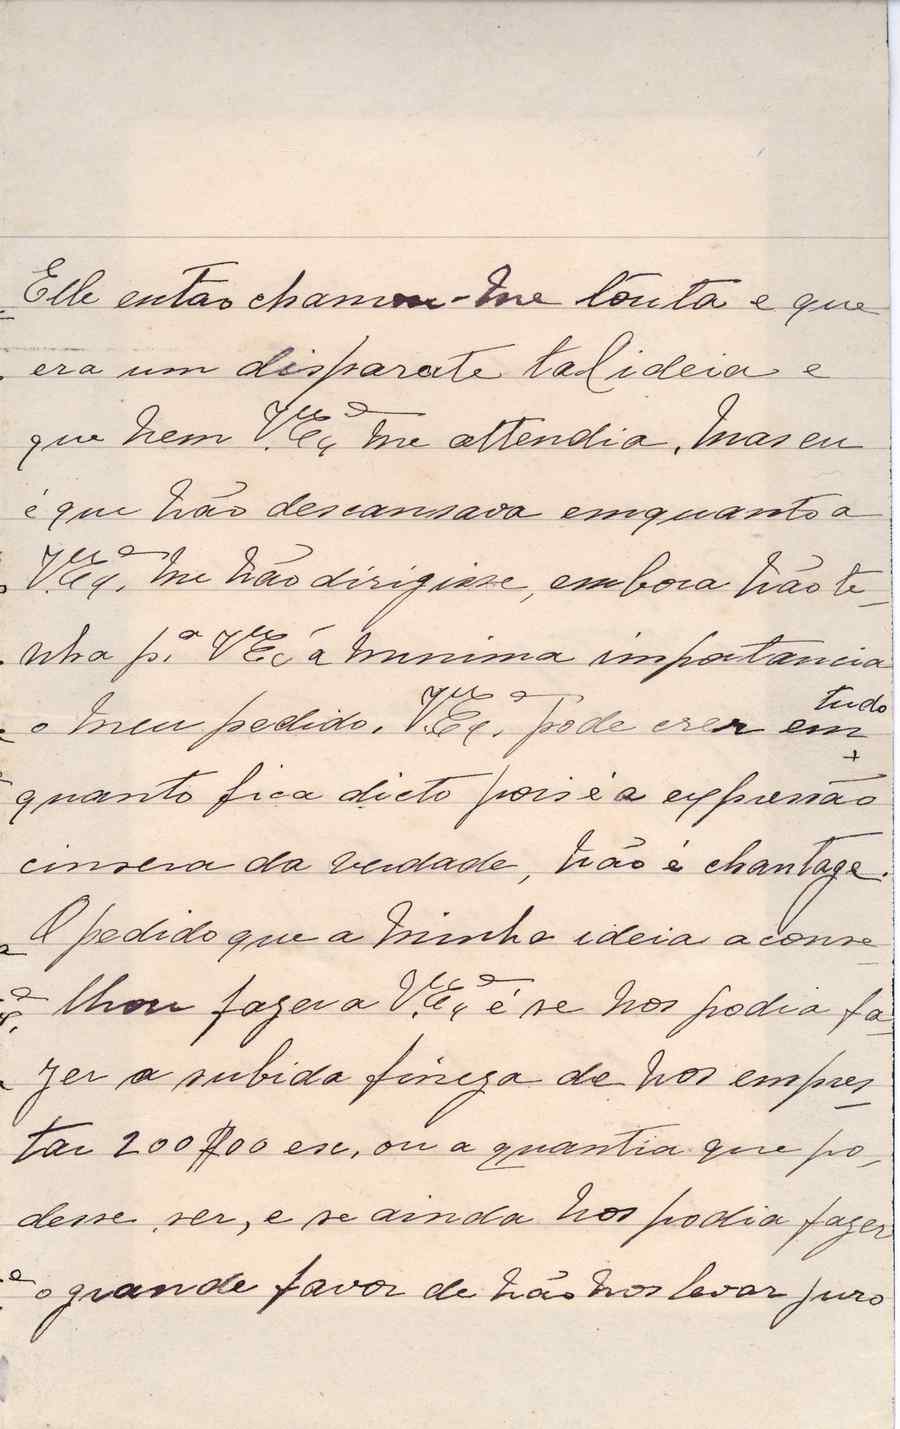 Elle então chamou-me louta e que
era um disparate tal ideia e
que nem V. Ex.ª me attendia. Mas eu
é que não descansava emquanto a
V. Ex.ª. me não dirigisse, embora não te-
nha p.ª V. Ex.ª a minima importancia
o meu pedido. V. Ex.ª. pode crer em tudo
quanto fica dicto pois é a expressão
cinsera da verdade, não é chantage.
O pedido que a minha ideia aconse-
lhou fazer a V. Ex.ª é se nos podia fa-
zer a subida fineza de nos empres-
tar 200$00 esc, ou a quantia que po-
desse ser, e se ainda nos podia fazer
o grande favor de não nos levar juro